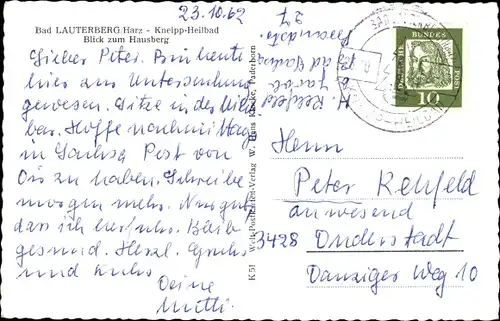 23.10.62
Bad LAUTERBERG/Harz - Kneipp-Heilbad
Blick zum Hausberg
Lieber Peter. Bin heute
hier zur Untersuchung
gewesen. Sitze in der
bar. Hoffe nachmittag
in Sachsa Post von
Dir zu haben. Schreibe
morgen mehr. Nur gut
dass ich herfuhr. Bleib
gesund. Herzl. Grüße
und Kuss
Deine
Mutti.
K 51 Welt-Postkarten-Verlag W. Hans Klocke, Paderborn
H. Rehfeld
Bad Sachsa
27
DEUTSCHE
BUNDES
POST
10
Herrn
Peter Rehfeld
anwesend
3428 Duderstadt
Danziger Weg 10